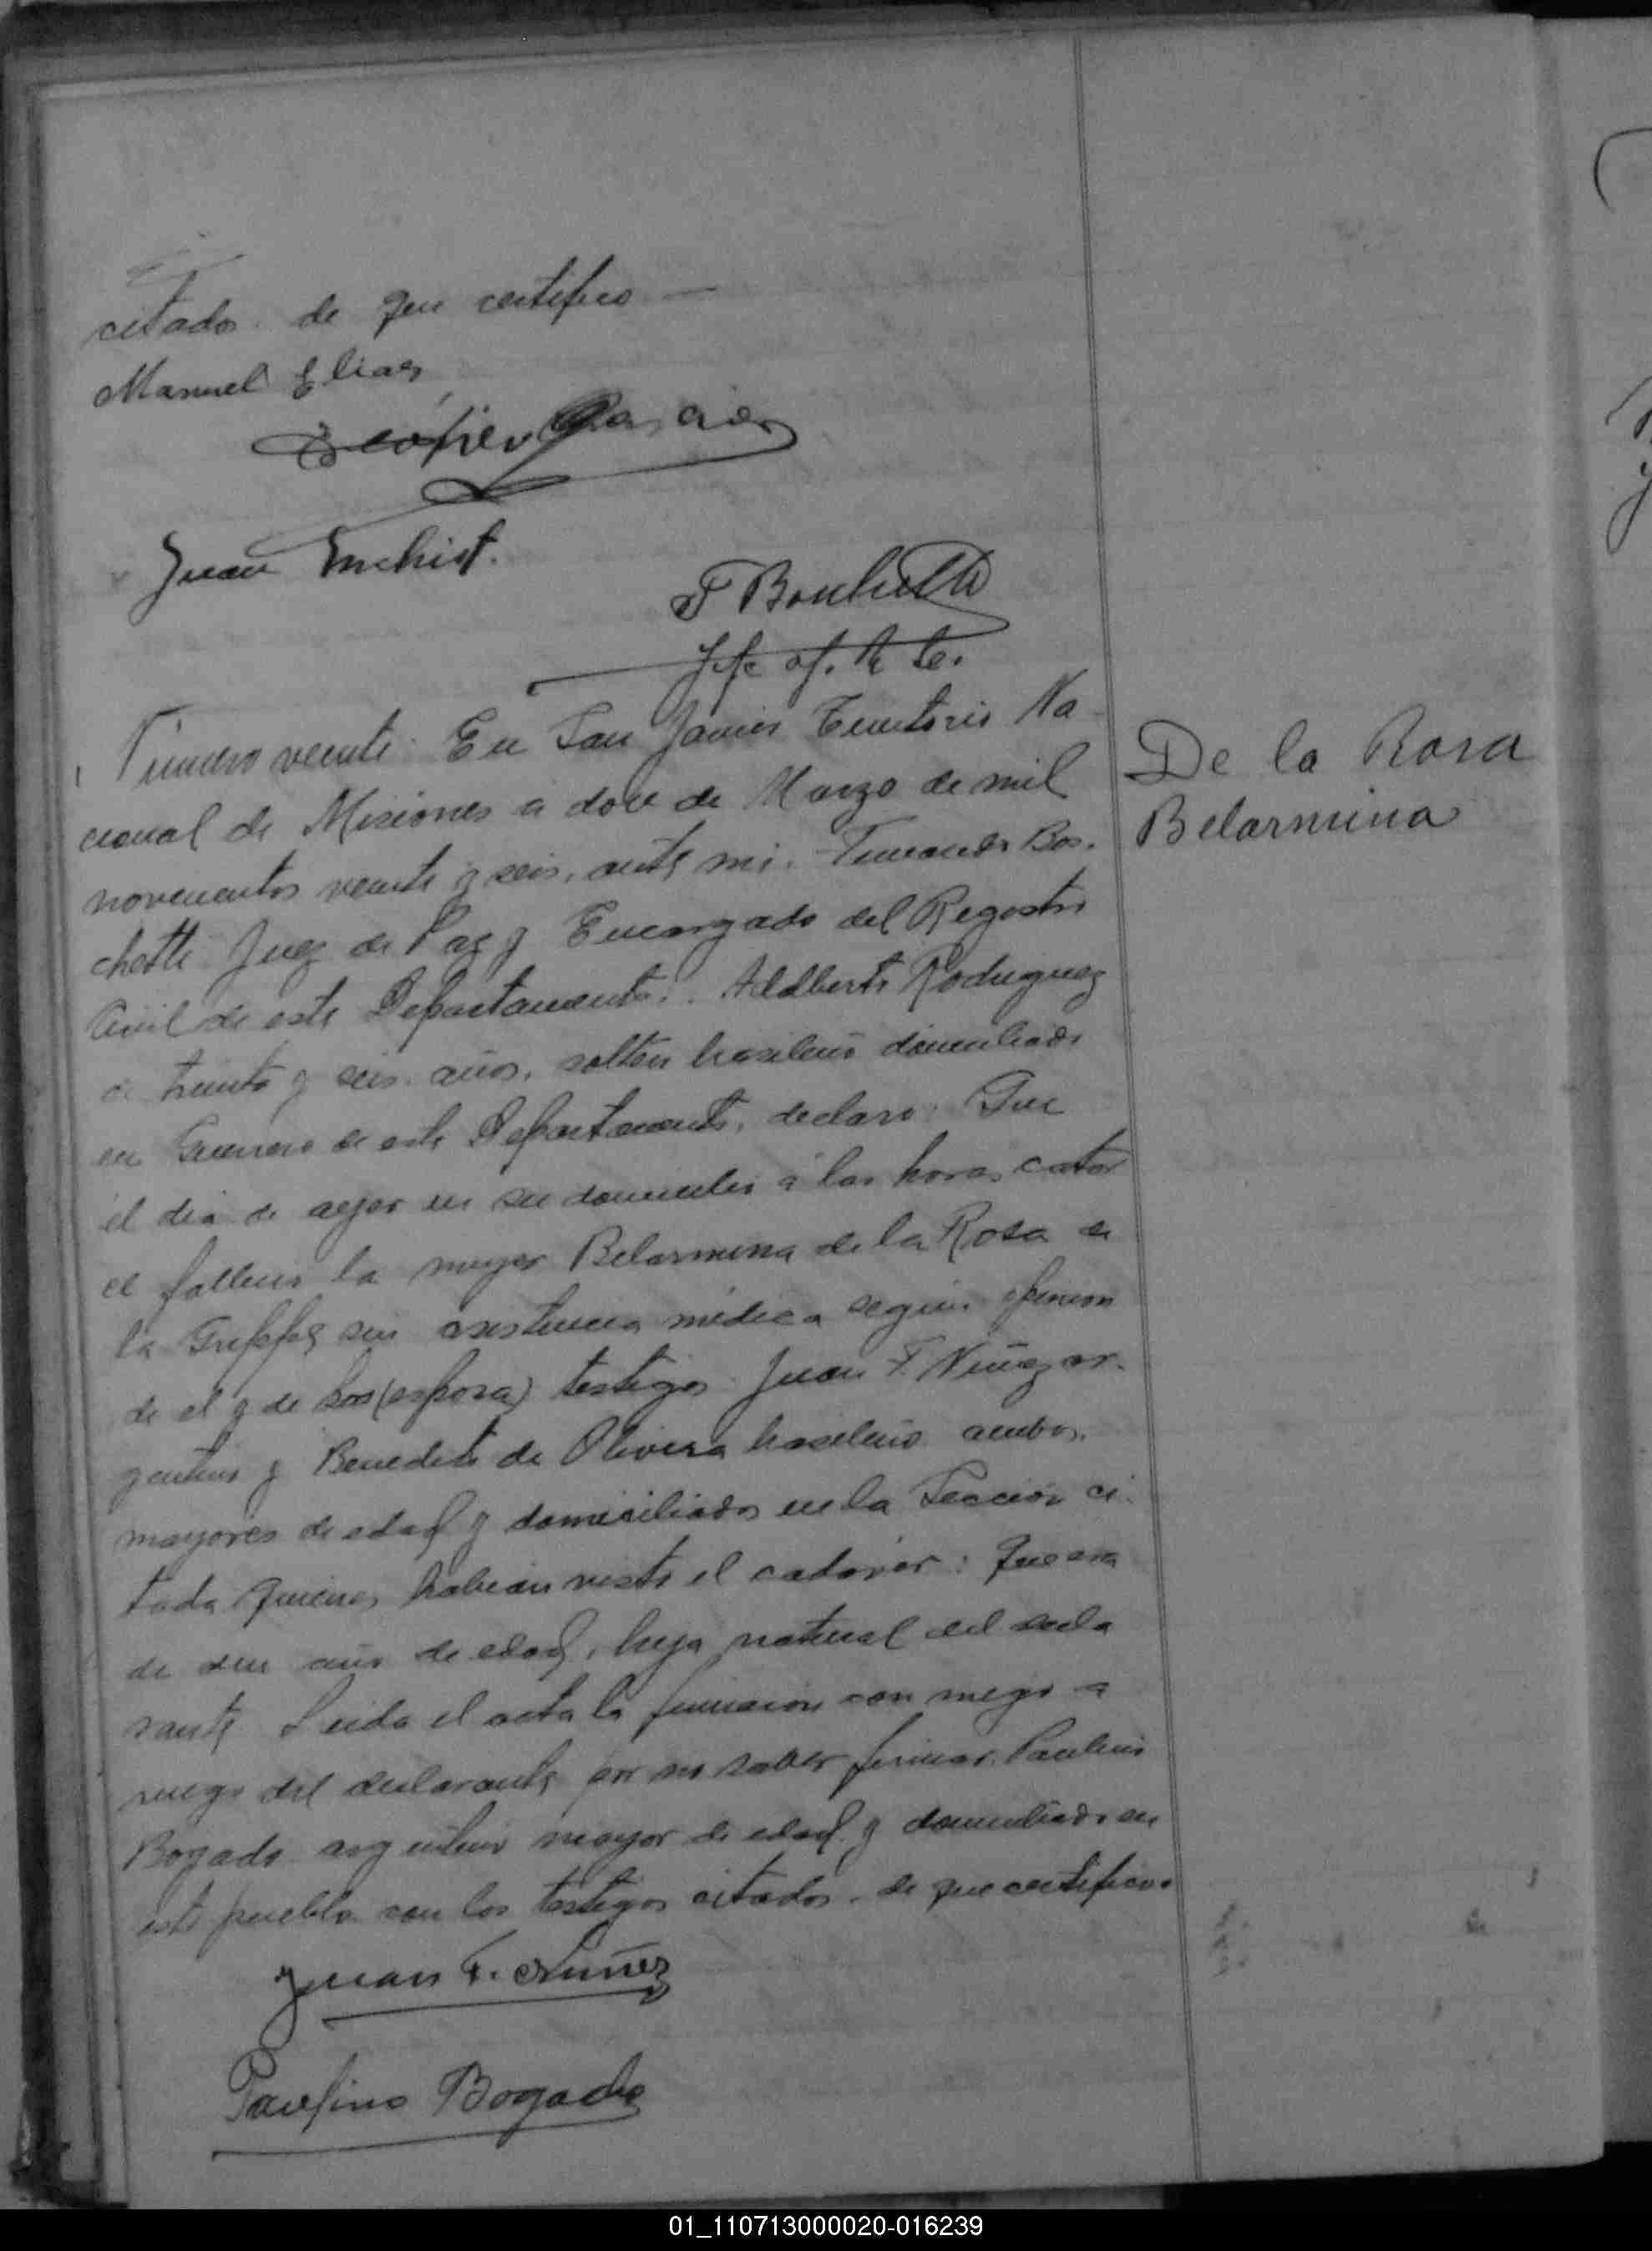 citados de que certifico —
Manuel Elias
Juan
F Boucheth
Jefe of. R C.
Numero veinte. En San Javier Territorio Na
cional de Misiones a doce de Marzo de mil
novecientos veinte y seis, ante mi. Fernando Bou.
chette Juez de Paz y Encargado del Registro
Civil de este Departamento: Adalberto Rodriguez
de treinta y seis años, soltero brasileño domiciliado
en Guerrero de este Departamento, declaro: Que
el dia de ayer en su domicilio á las horas cator
ce fallecio la mujer Belarmina de la Rosa de
la Grippe sin asistencia médica según opinion
de el y de los testigos Juan F. Nuñez ar.
gentino y Benedito de Olivera brasileño ambos.
mayores de edad y domiciliados en la Sección ci.
tada quienes habian visto el cadaver: Que era
de un año de edad, hija natural del decla
rante Leida el acta la firmaron con migo a
ruego del declarante por no saber firmar Paulino
Bogado argentino mayor de edad y domiciliado en
este pueblo con los testigos citados. de que certifico.
Juan F. Nuñez
Paulino Bogado
De la Rosa
Belarmina
01_110713000020-016239